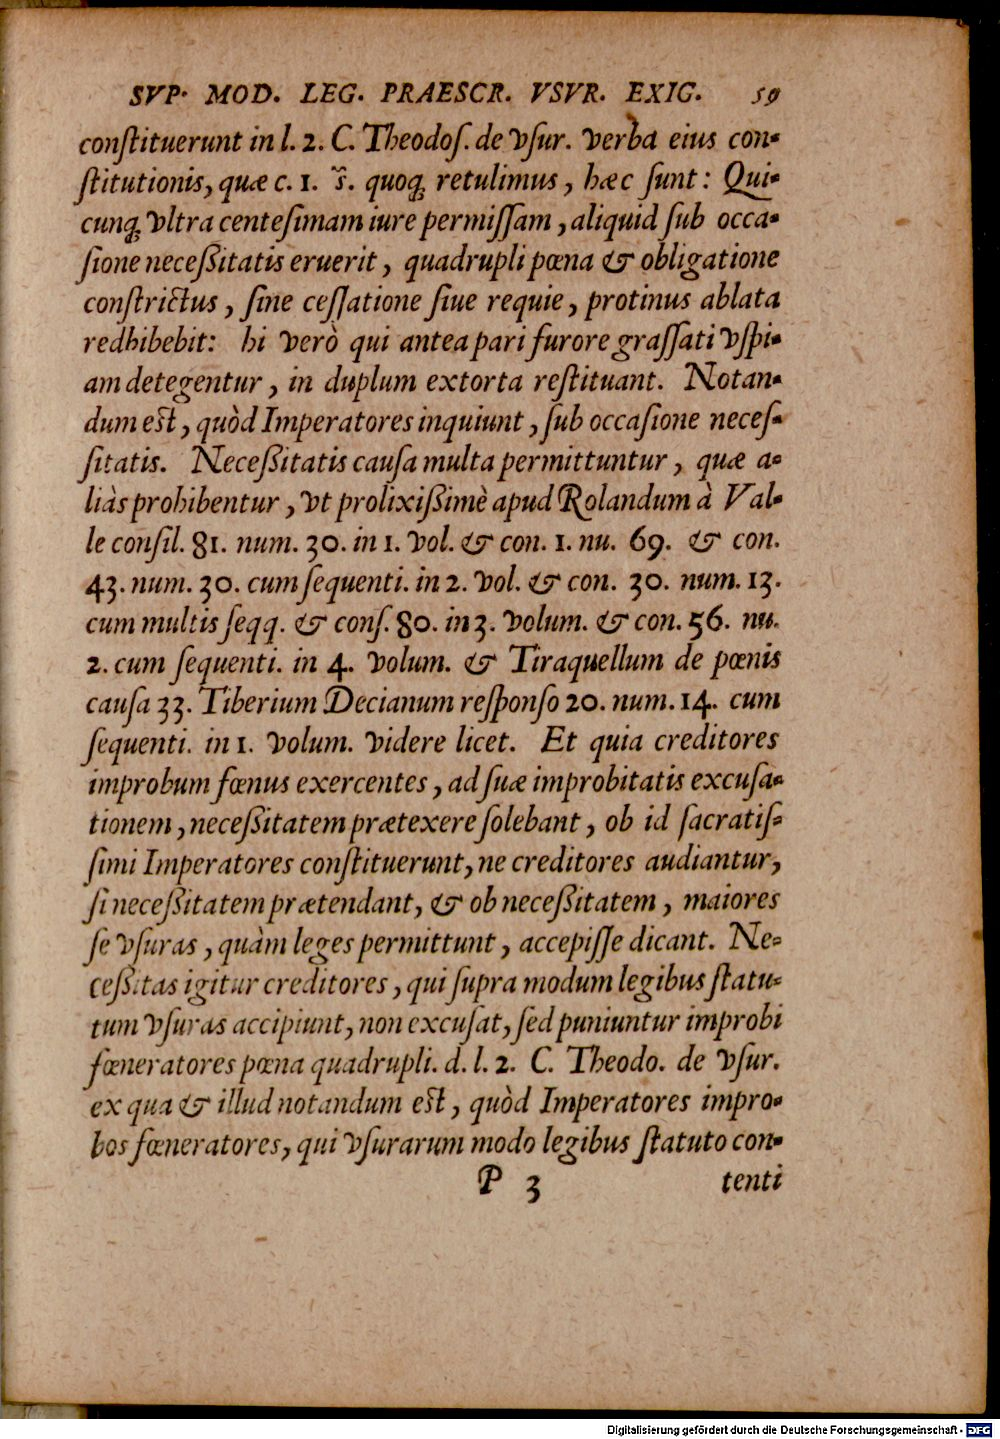 SVP. MOD. LEG. PRAESCR. VSVR. EXIG. 59
conſtituerunt in l. 2. C. Theodoſ. de vſur. verba eius con-
ſtitutionis, quæ c. 1. s̃. quoq; retulimus, hæc ſunt: Qui-
cunq; vltra centeſimam iure permiſſam, aliquid ſub occa-
ſione neceßitatis eruerit, quadrupli pœna & obligatione
conſtrictus, ſine ceſſatione ſiue requie, protinus ablata
redhibebit: hi verò qui antea pari furore graſſati vſpi-
am detegentur, in duplum extorta reſtituant. Notan-
dum eſt, quòd Imperatores inquiunt, ſub occaſione neceſ-
ſitatis. Neceßitatis cauſa multa permittuntur, quæ a-
liàs prohibentur, vt prolixißimè apud Rolandum à Val-
le conſil. 81. num. 30. in 1. vol. & con. 1. nu. 69. & con.
43. num. 30. cum ſequenti. in 2. vol. & con. 30. num. 13.
cum multis ſeqq. & conſ. 80. in 3. volum. & con. 56. nu.
2. cum ſequenti. in 4. volum. & Tiraquellum de pœnis
cauſa 33. Tiberium Decianum reſponſo 20. num. 14. cum
ſequenti. in 1. volum. videre licet. Et quia creditores
improbum fœnus exercentes, ad ſuæ improbitatis excuſa-
tionem, neceßitatem prætexere ſolebant, ob id ſacratiſ-
ſimi Imperatores conſtituerunt, ne creditores audiantur,
ſi neceßitatem prætendant, & ob neceßitatem, maiores
ſe vſuras, quàm leges permittunt, accepiſſe dicant. Ne-
ceßitas igitur creditores, qui ſupra modum legibus ſtatu-
tum vſuras accipiunt, non excuſat, ſed puniuntur improbi
fœneratores pœna quadrupli. d. l. 2. C. Theodo. de vſur.
ex qua & illud notandum eſt, quòd Imperatores impro-
bos fœneratores, qui vſurarum modo legibus ſtatuto con-
P 3 tenti
Digitalisierung gefördert durch die Deutsche Forschungsgemeinschaft - DFG